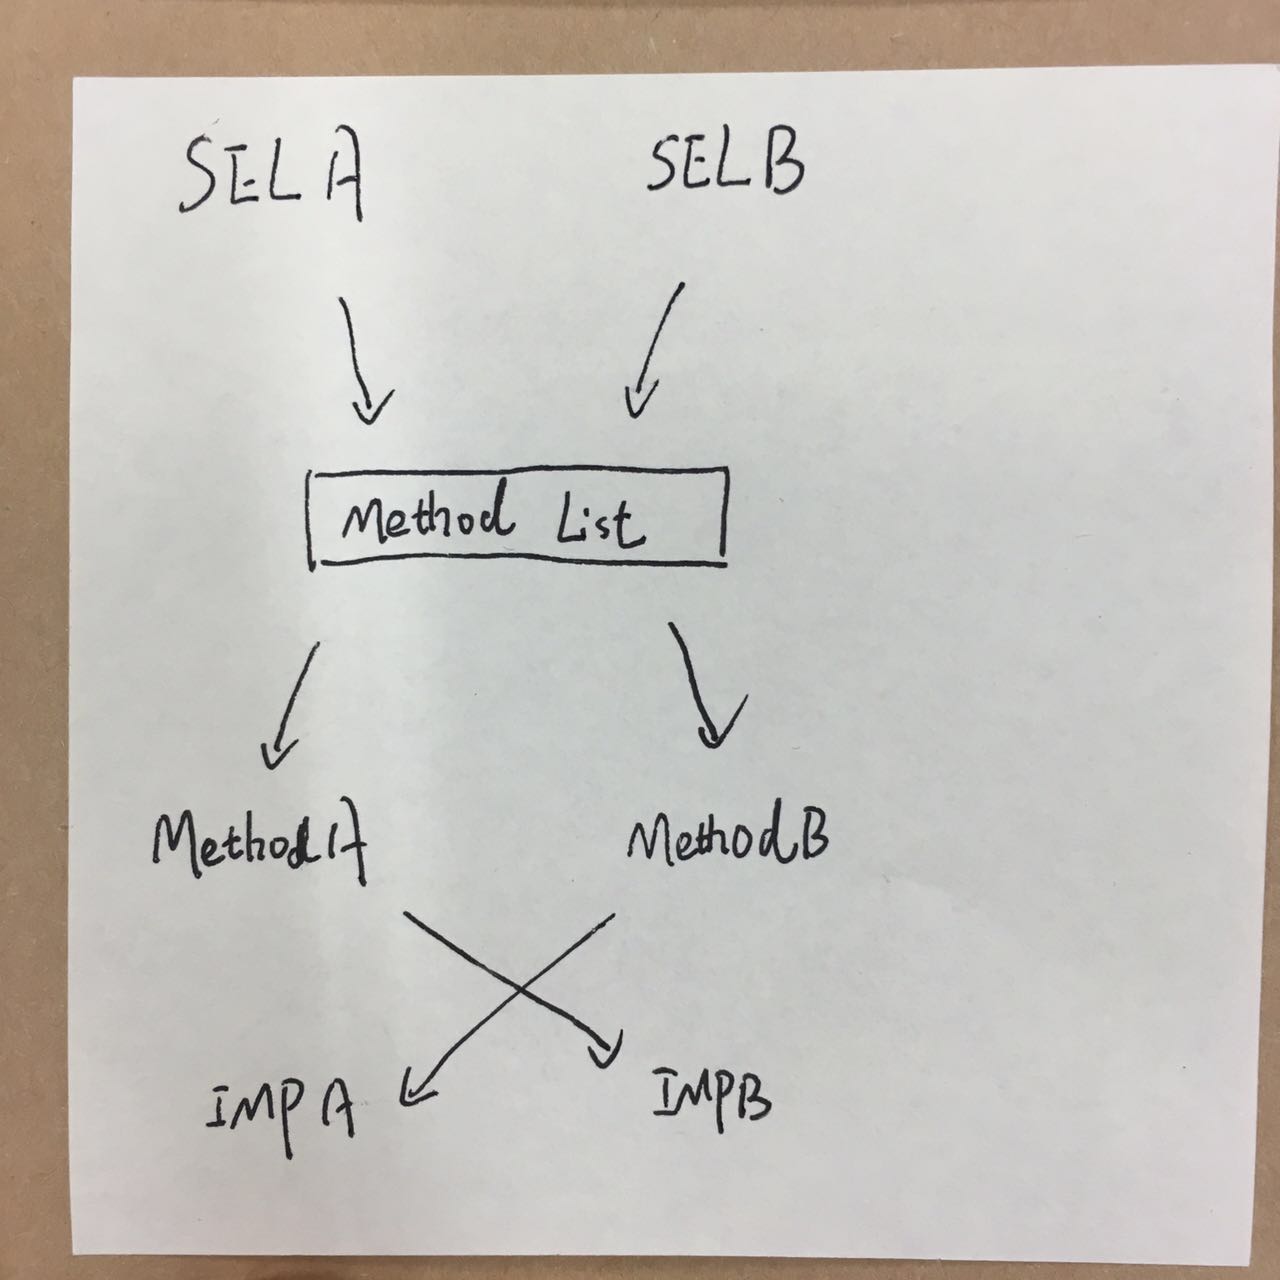 SEL A SEL B
Method List
Method A Method B
IMP A IMP B